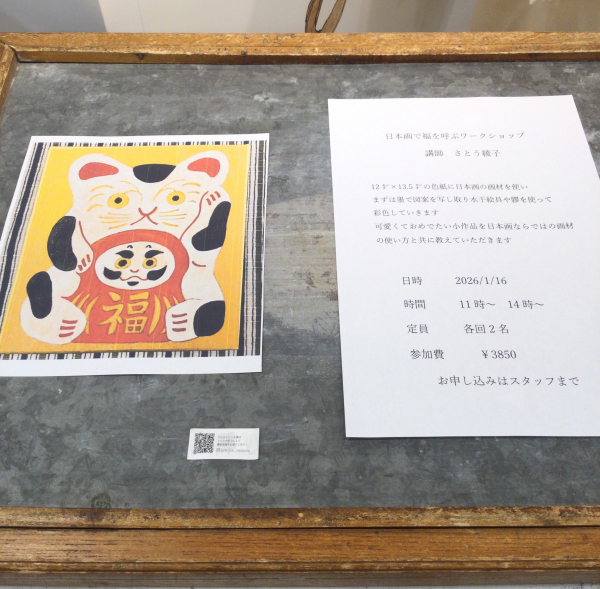 福
日本画で福を呼ぶワークショップ
講師 さとう綾子
12㌢×13.5㌢の色紙に日本画の画材を使い
まずは墨で図案を写し取り水干絵具や膠を使って
彩色していきます
可愛くておめでたい小作品を日本画ならではの画材
の使い方と共に教えていただきます
日時 2026/1/16
時間 11時～ 14時～
定員 各回2名
参加費 ￥3850
お申し込みはスタッフまで